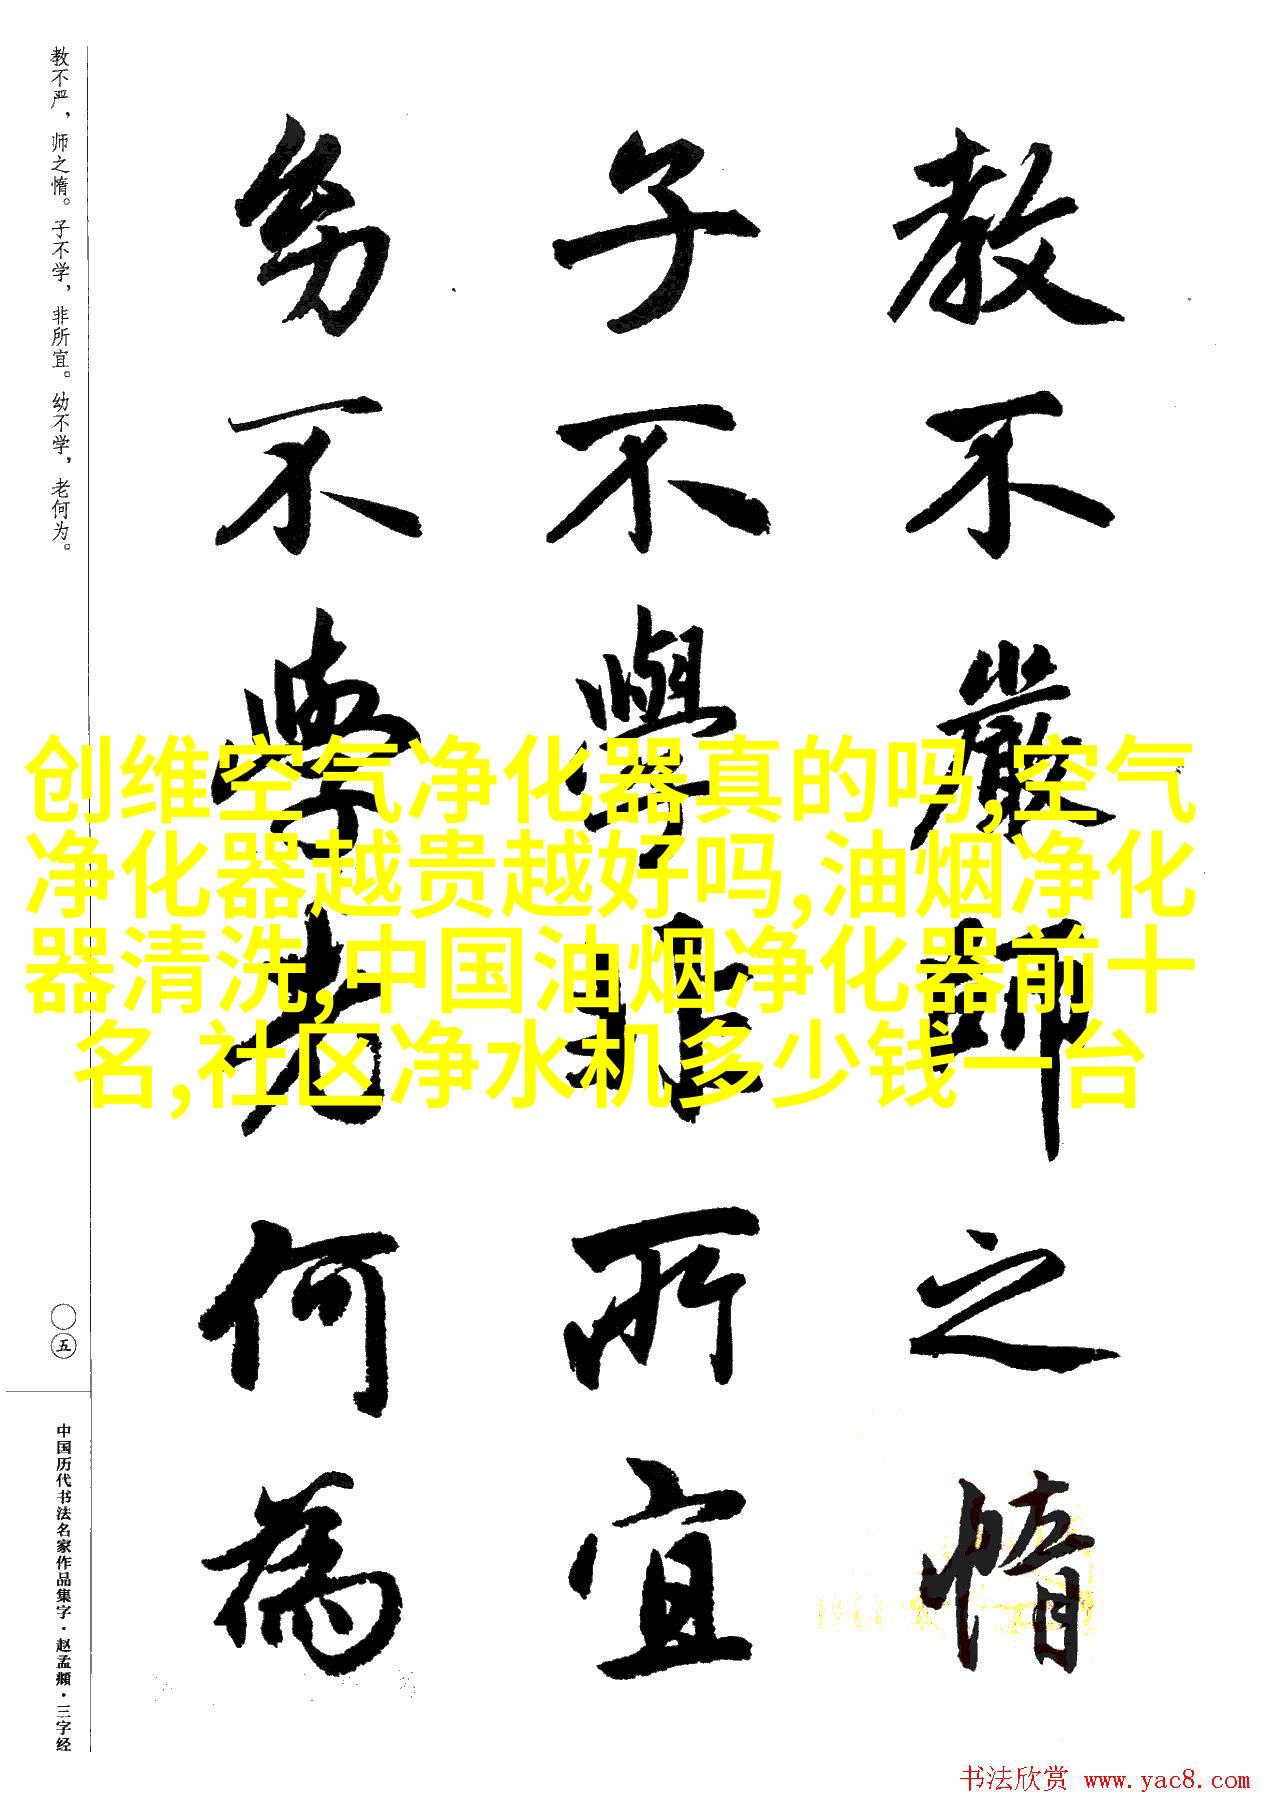 教不嚴師之惰
子不學非所宜
幼不學老何為
教不严，师之惰。子不学，非所宜。幼不学，老何为。
〇五
中国历代书法名家作品集字·赵孟頫·三字经
创维空气净化器真的吗,空气
净化器越贵越好吗,油烟净化
器清洗,中国油烟净化器前十
名,社区净水机多少钱一台
书法欣赏 www.yac8.com